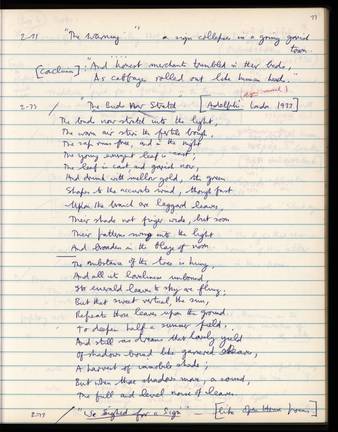 77
2-71 "The Warning" - a sign collapses in a going
town.
"And honest merchants trembled in their beds,
As cabbages rolled out like human heads."
2-73 "The buds now stretch [Adelphi London 1933]
The buds now stretch into the light,
The warm air stirs the fertile bough,
The sap runs free, and in the night
The young emergent leaf is cast;
The leaf is cast and now,
And drunk with mellow gold, the green
Shapes to the accurate wind, though fast
Upon the branch are laggard leaves,
Their shade not finger wide, but soon
Their patterns swing into the light
And broaden in the blaze of noon.
The substance of the tree is hung,
And all its loveliness unbound,
Its emerald leaves to sky are flung;
But that sweet vertical, the sun,
Repeats those leaves upon the ground.
To deepen half a summer field;
And still as dreams that lovely yield
Of shadows bound like garnered sheaves,
A harvest of immobile shade;
But when those shadows move, a sound,
The full and level noise of leaves.
"We Sighed for a Sign" - [like poem]